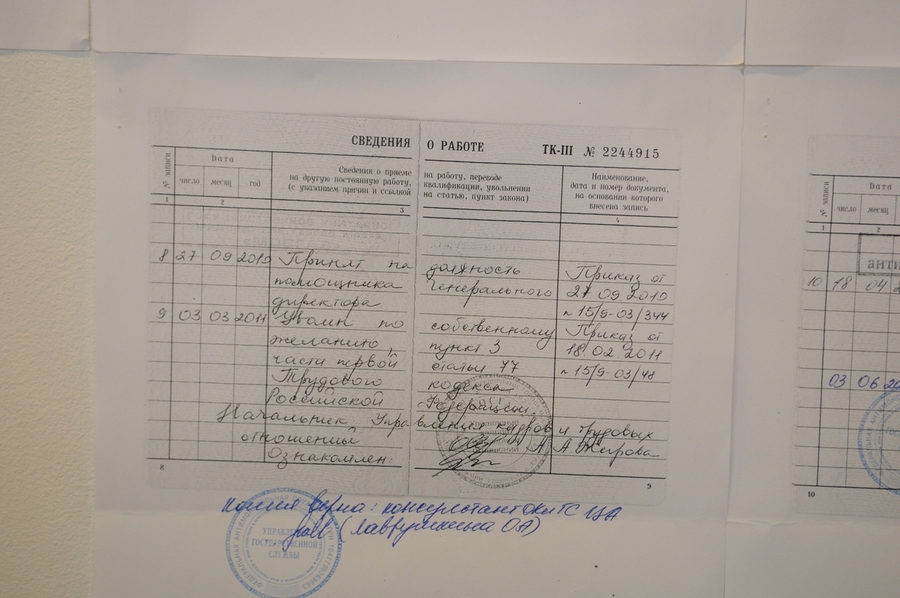 СВЕДЕНИЯ О РАБОТЕ ТК-III № 2244915
№ записи
Дата
число месяц год
Сведения о приеме на работу, переводе
на другую постоянную работу, квалификации, увольнении
(с указанием причин и ссылкой на статью, пункт закона)
Наименование,
дата и номер документа,
на основании которого
внесена запись
1 2 3 4
8 27 09 2010 Принят на должность Приказ от
помощника Генерального 27 09 2010
директора № 15/9-03/344
9 03 03 2011 Уволен по собственному Приказ от
желанию, пункт 3 18 02 2011
части первой статьи 77 № 15/9-03/48
Трудового кодекса
Российской Федерации.
Начальник Управления кадров и трудовых
отношений А А Жирова
Ознакомлен:
8 9
копия верна: консультант
УПРАВЛЕНИЕ
ГОСУДАРСТВЕННОЙ
СЛУЖБЫ
№ записи
Дата
число месяц
1 2
анти
10 18 04
03 06
10